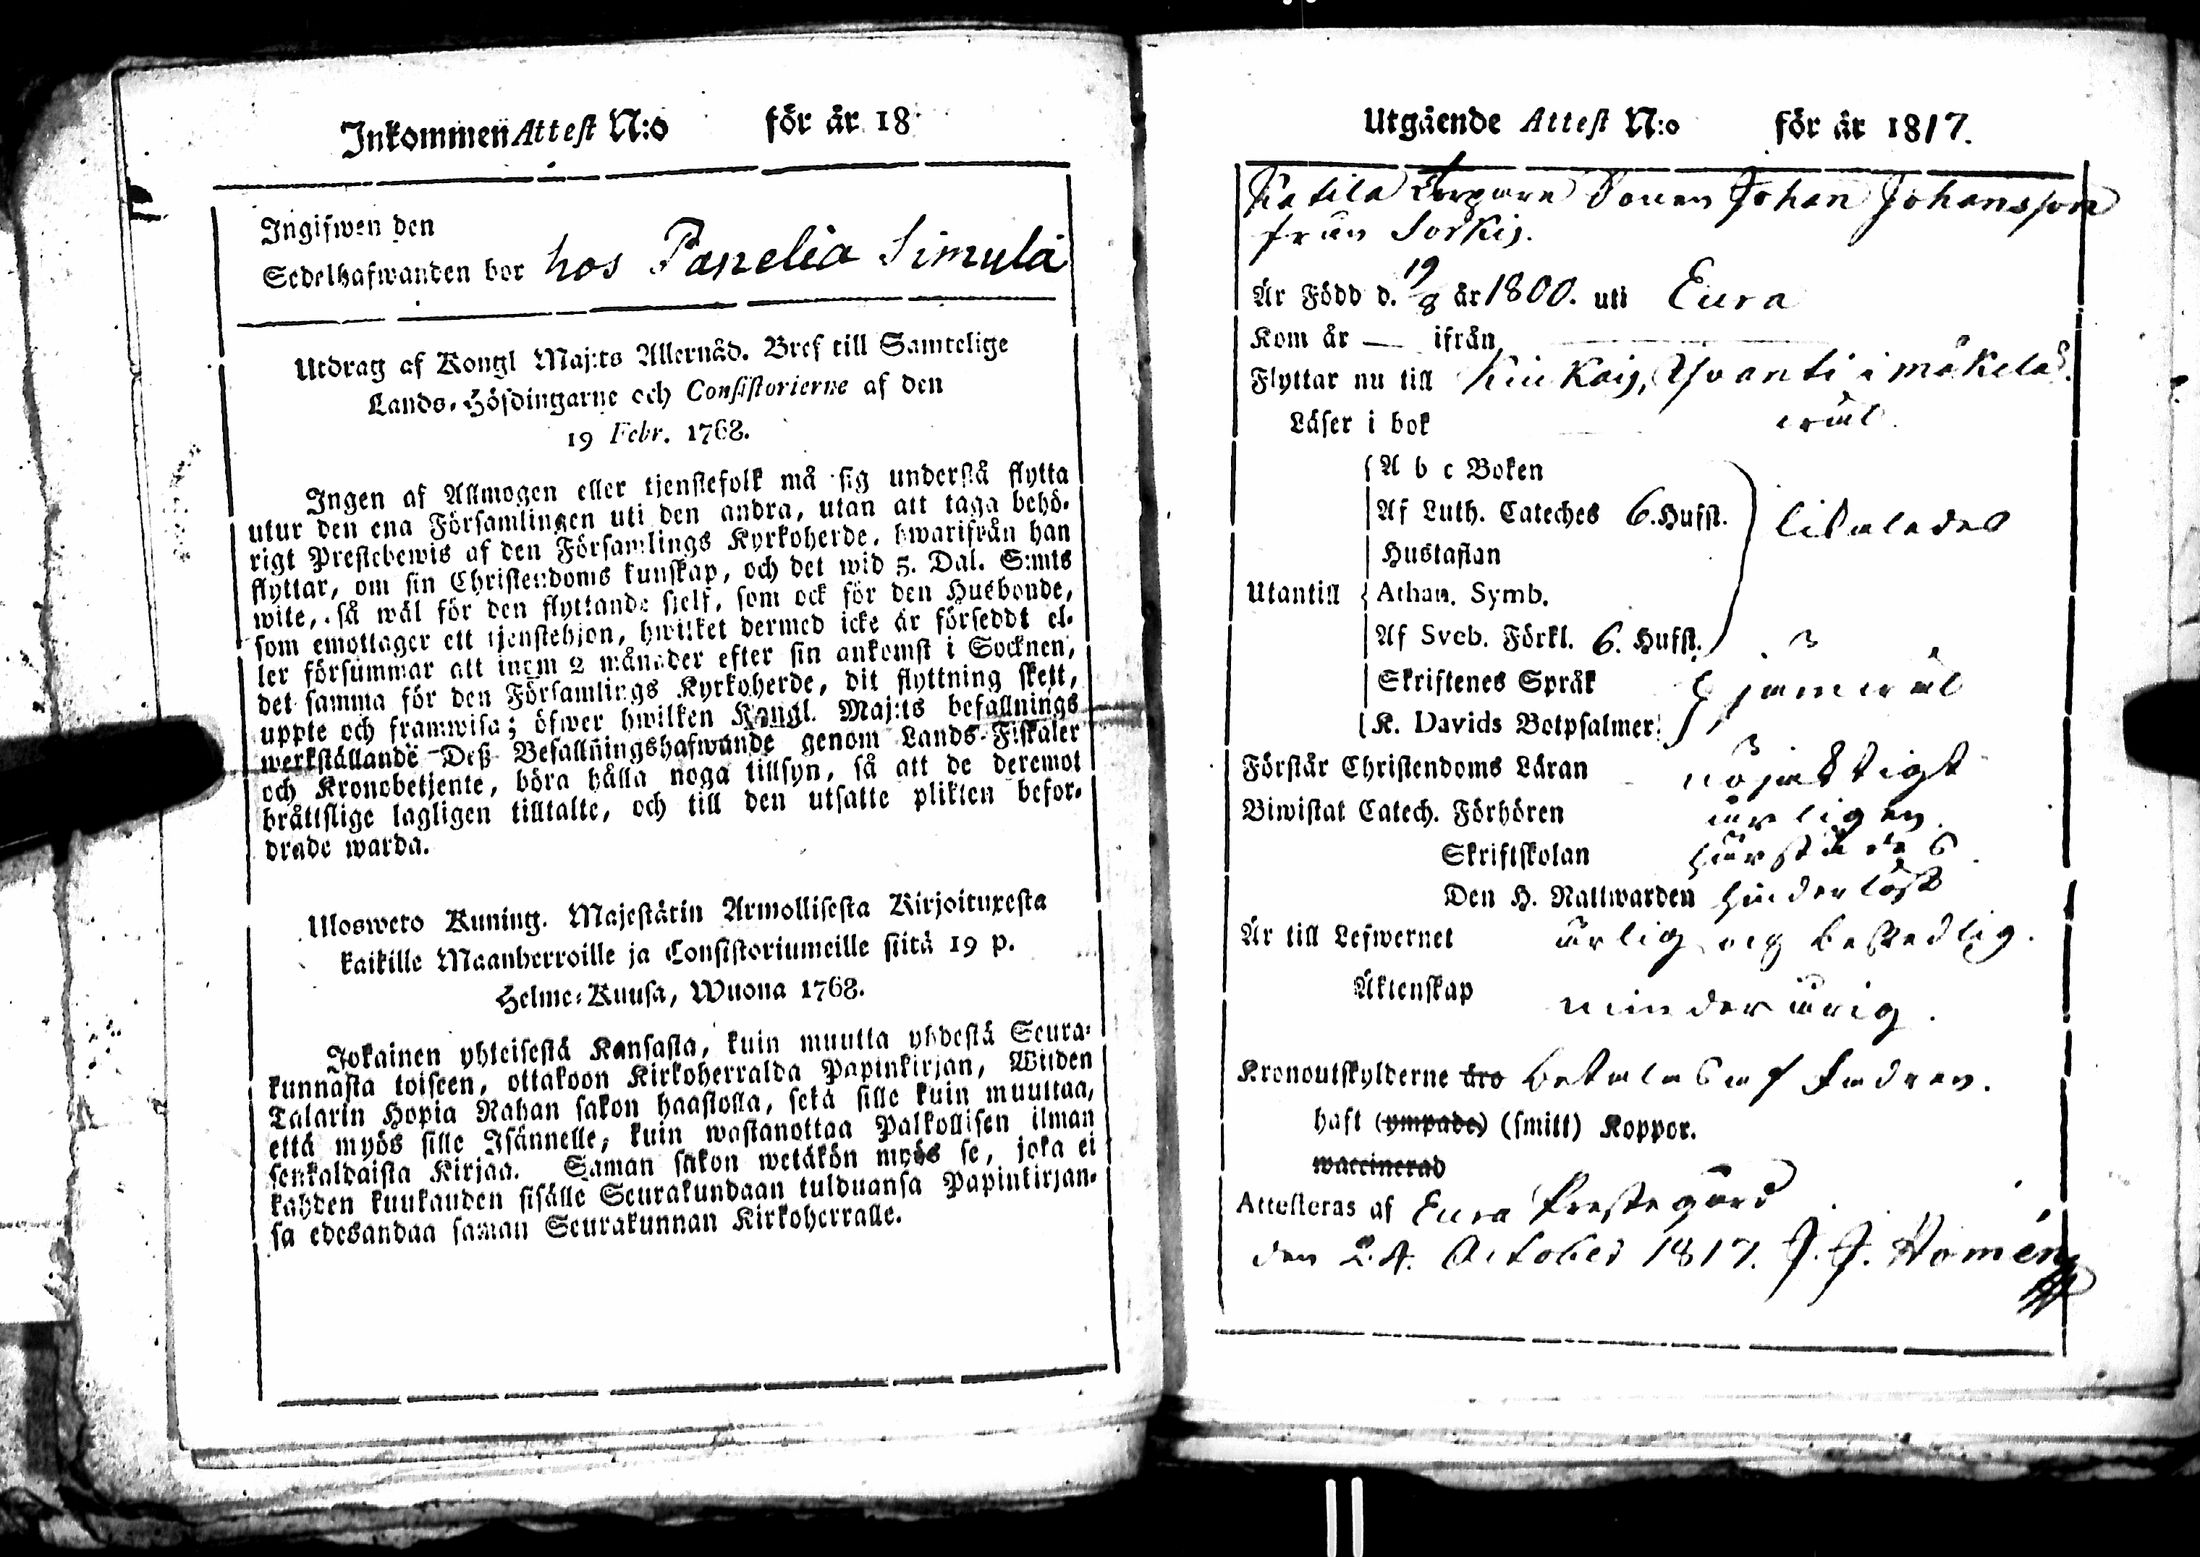 Inkommen Attest N:o för år 18
Ingifwen den
Sedelhafwanden bor hos Panelia Simula
Utdrag af Kongl Maj:ts Allernåd. Bref till Samtelige
Lands-Höfdingarne och Consistorierne af den
19 Febr. 1768.
Ingen af Allmogen eller tjenstefolk må sig understå flytta
utur den ena Församlingen uti den andra, utan att taga behö-
rigt Prestebewis af den Församlings Kyrkoherde, hwarifrån han
flyttar, om sin Christendoms kunskap, och det wid 5. Dal. S:mts
wite, så wäl för den flyttande sielf, som ock för den Husbonde,
som emottager ett tjenstehjon, hwilket dermed icke är försedt el-
ler försummar att inom 2 månader efter sin ankomst i Socknen,
det samma för den Församlings Kyrkoherde, dit flyttning skett,
uppte och framwisa; öfwer hwilken Kongl. Maj:ts befallnings
werkställande Deß Befallningshafwande genom Lands-Fiskaler
och Kronobetjente, böra hålla noga tillsyn, så att de deremot
bråttslige lagligen tilltalte, och till den utsatte plikten befor-
drade warda.
Ulosweto Kuning. Majestätin Armollisesta Kirjoituxesta
kaikille Maanherroille ja Consistoriumeille siitä 19 p.
Helme-Kuusa, Wuona 1768.
Jokainen yhteisestä Kansasta, kuin muutta yhdestä Seura-
kunnasta toiseen, ottakoon Kirkoherralda Papinkirjan, Wiiden
Talarin Hopia Rahan sakon haastolla, sekä sille kuin muuttaa,
että myös sille Isännelle, kuin wastanottaa Palkollisen ilman
senkaldaista Kirjaa. Saman sakon wetäkön myös se, joka ei
kahden kuukauden sisälle Seurakundaan tulduansa Papinkirjan-
sa edesandaa saman Seurakunnan Kirkoherralle.
Utgående Attest N:o för år 1817.
Katila Torpare Sonen Johan Johansson
från Sorkis.
Är Född d. 19/8 år 1800. uti Eura
Kom år — ifrån
Flyttar nu till Kiukais, i mäkelä
Läser i bok wäl
A b c Boken
Af Luth. Cateches 6. Hufst.
Hustaflan
Utantill Athan. Symb.
Af Sveb. Förkl. 6. Hufst.
Skriftenes Språk jemwäl
K. Davids Botpsalmer
Förstår Christendoms Läran nöjaktigt
Biwistat Catech. Förhören årligen
Skriftskolan
Den H. Nattwarden hinderlöst
Är till Lefwernet ärlig och beskedlig.
Äktenskap minderårig.
Kronoutskylderne äro betalas af Fadren.
haft (ympade) (smitt) Koppor.
waccinerad
Attesteras af Eura Prestegård
den 24. October 1817. J. J. Homén